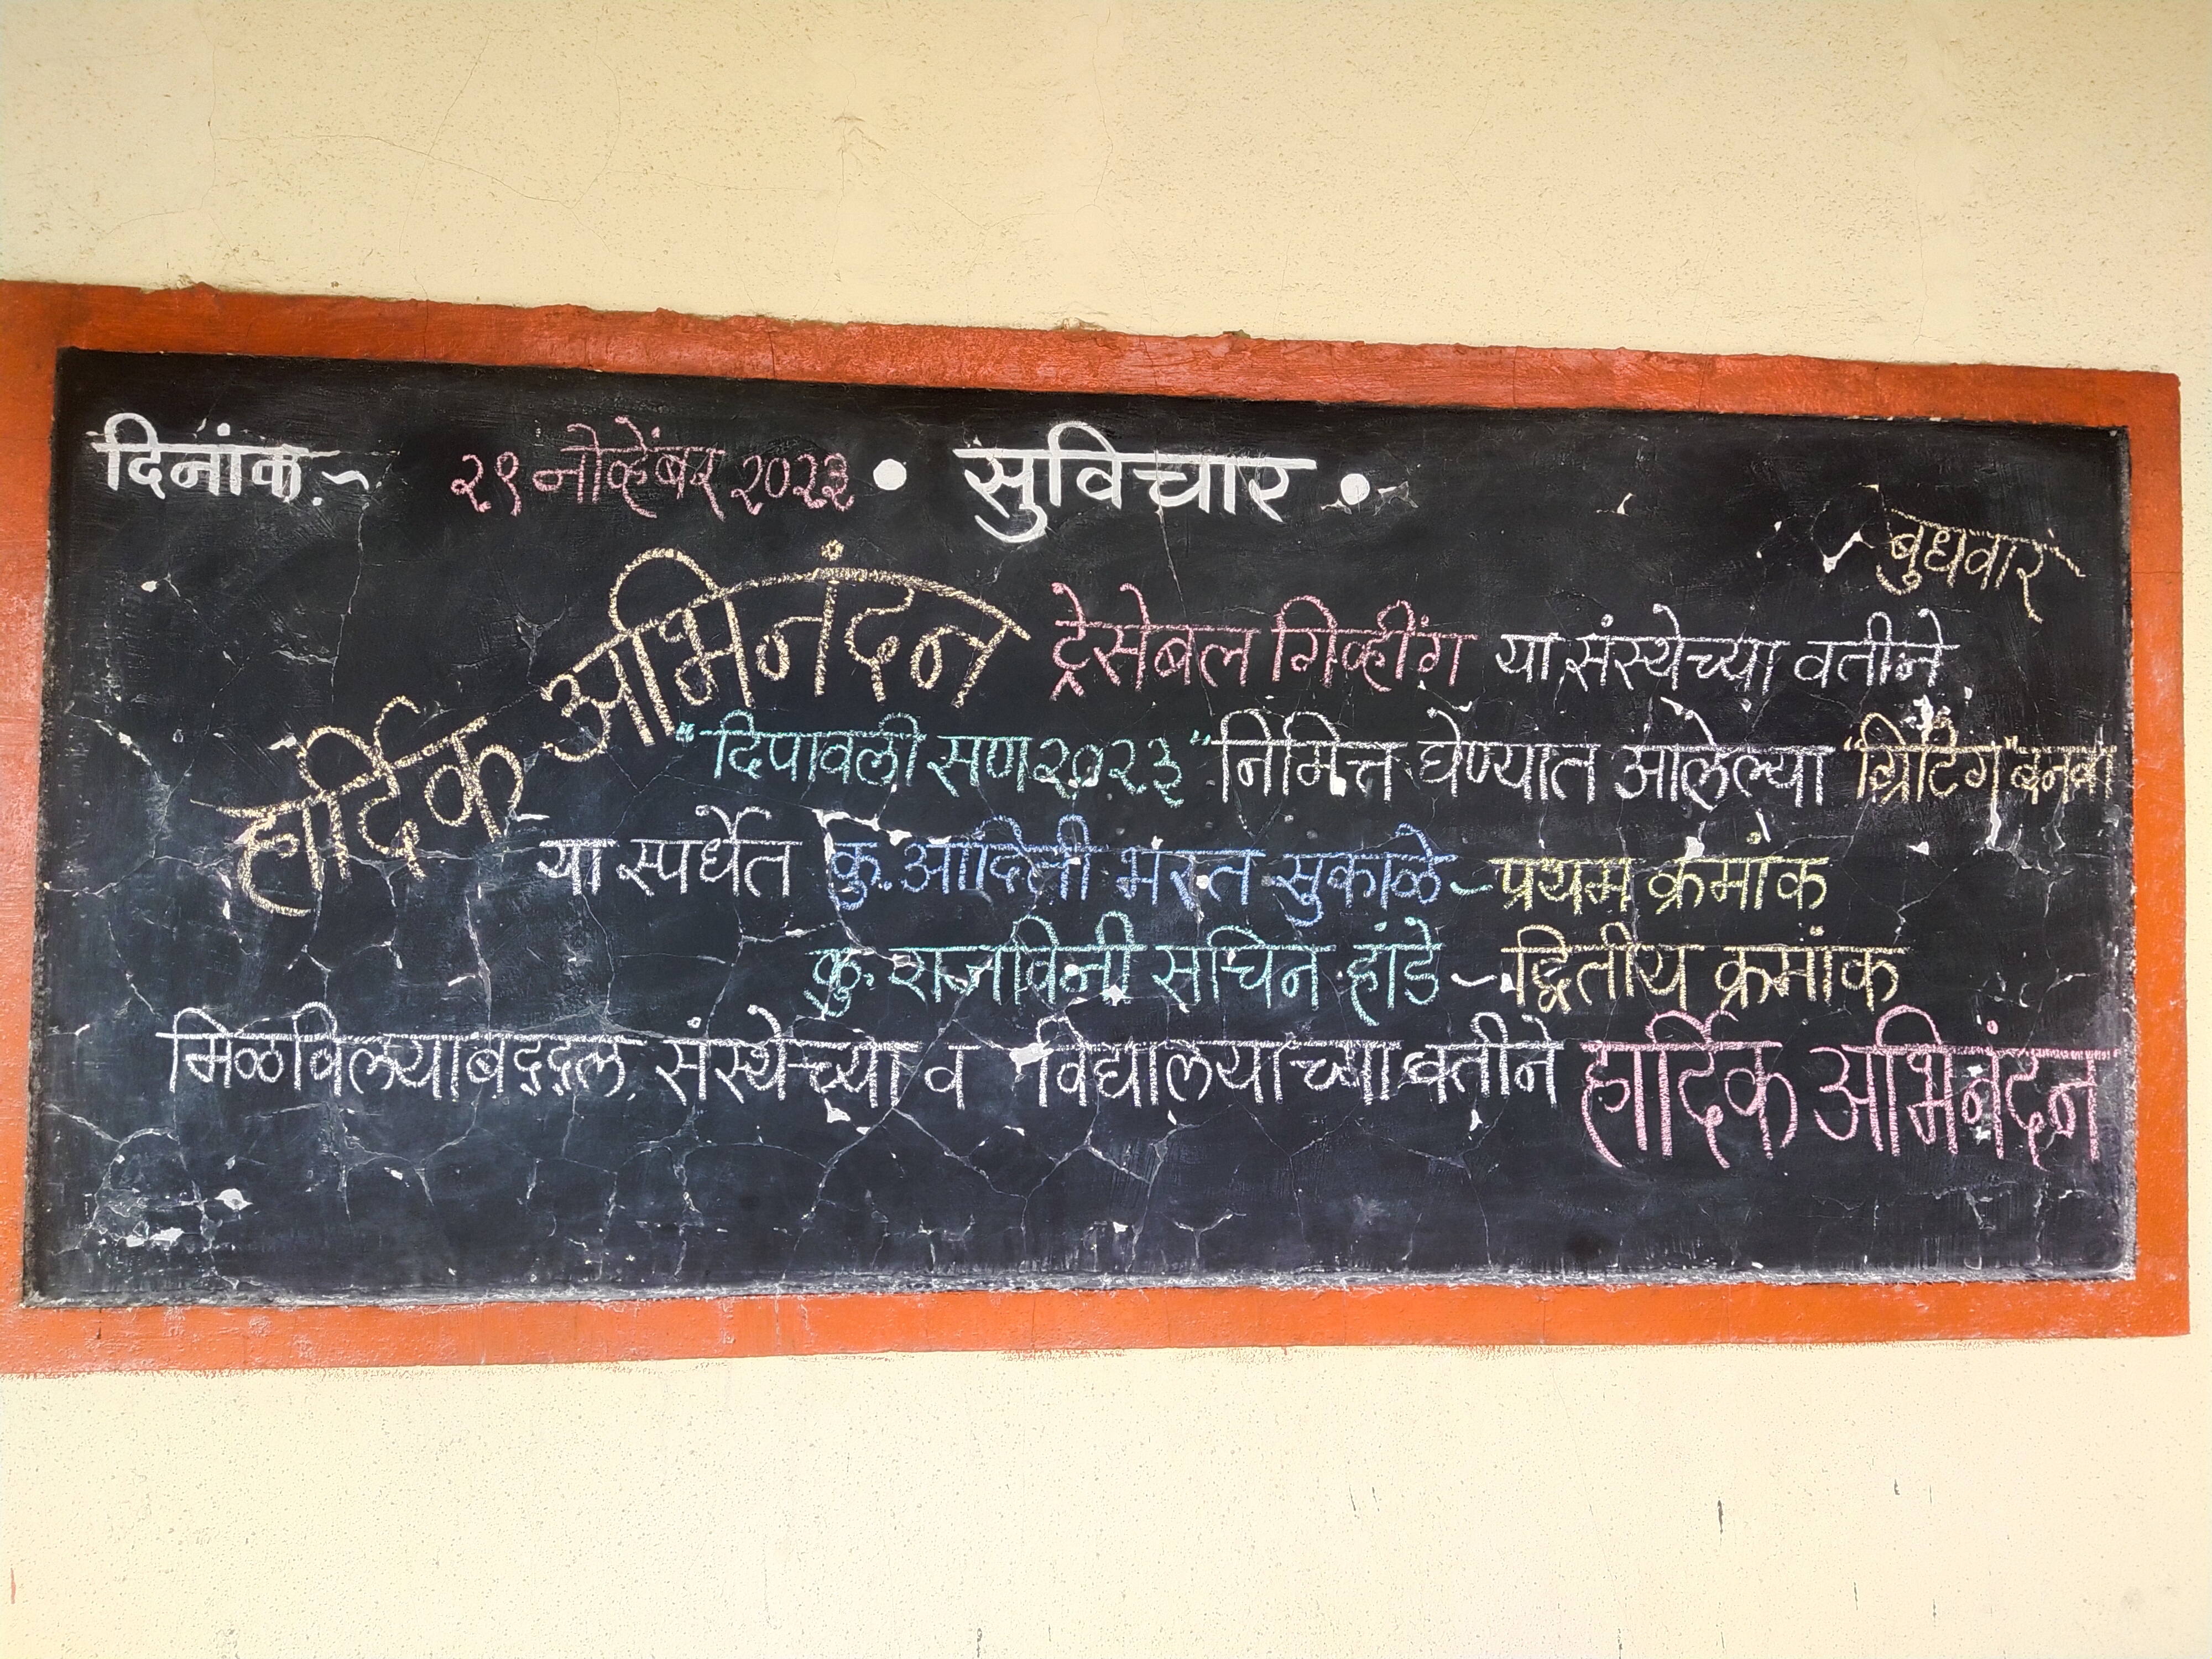 दिनांक.~ २९ नोव्हेंबर २०२३ • सुविचार •
बुधवार
हार्दिक अभिनंदन
ट्रेसेबल गिव्हींग या संस्थेच्या वतीने
"दिपावली सण २०२३" निमित्त घेण्यात आलेल्या "ग्रिटिंग" बनवा
या स्पर्धेत कु. आदिती भरत सुकाळे ~ प्रथम क्रमांक
कु. राजविनी सचिन हांडे ~ द्वितीय क्रमांक
मिळविल्याबद्दल संस्थेच्या व विद्यालयाच्या वतीने हार्दिक अभिनंदन